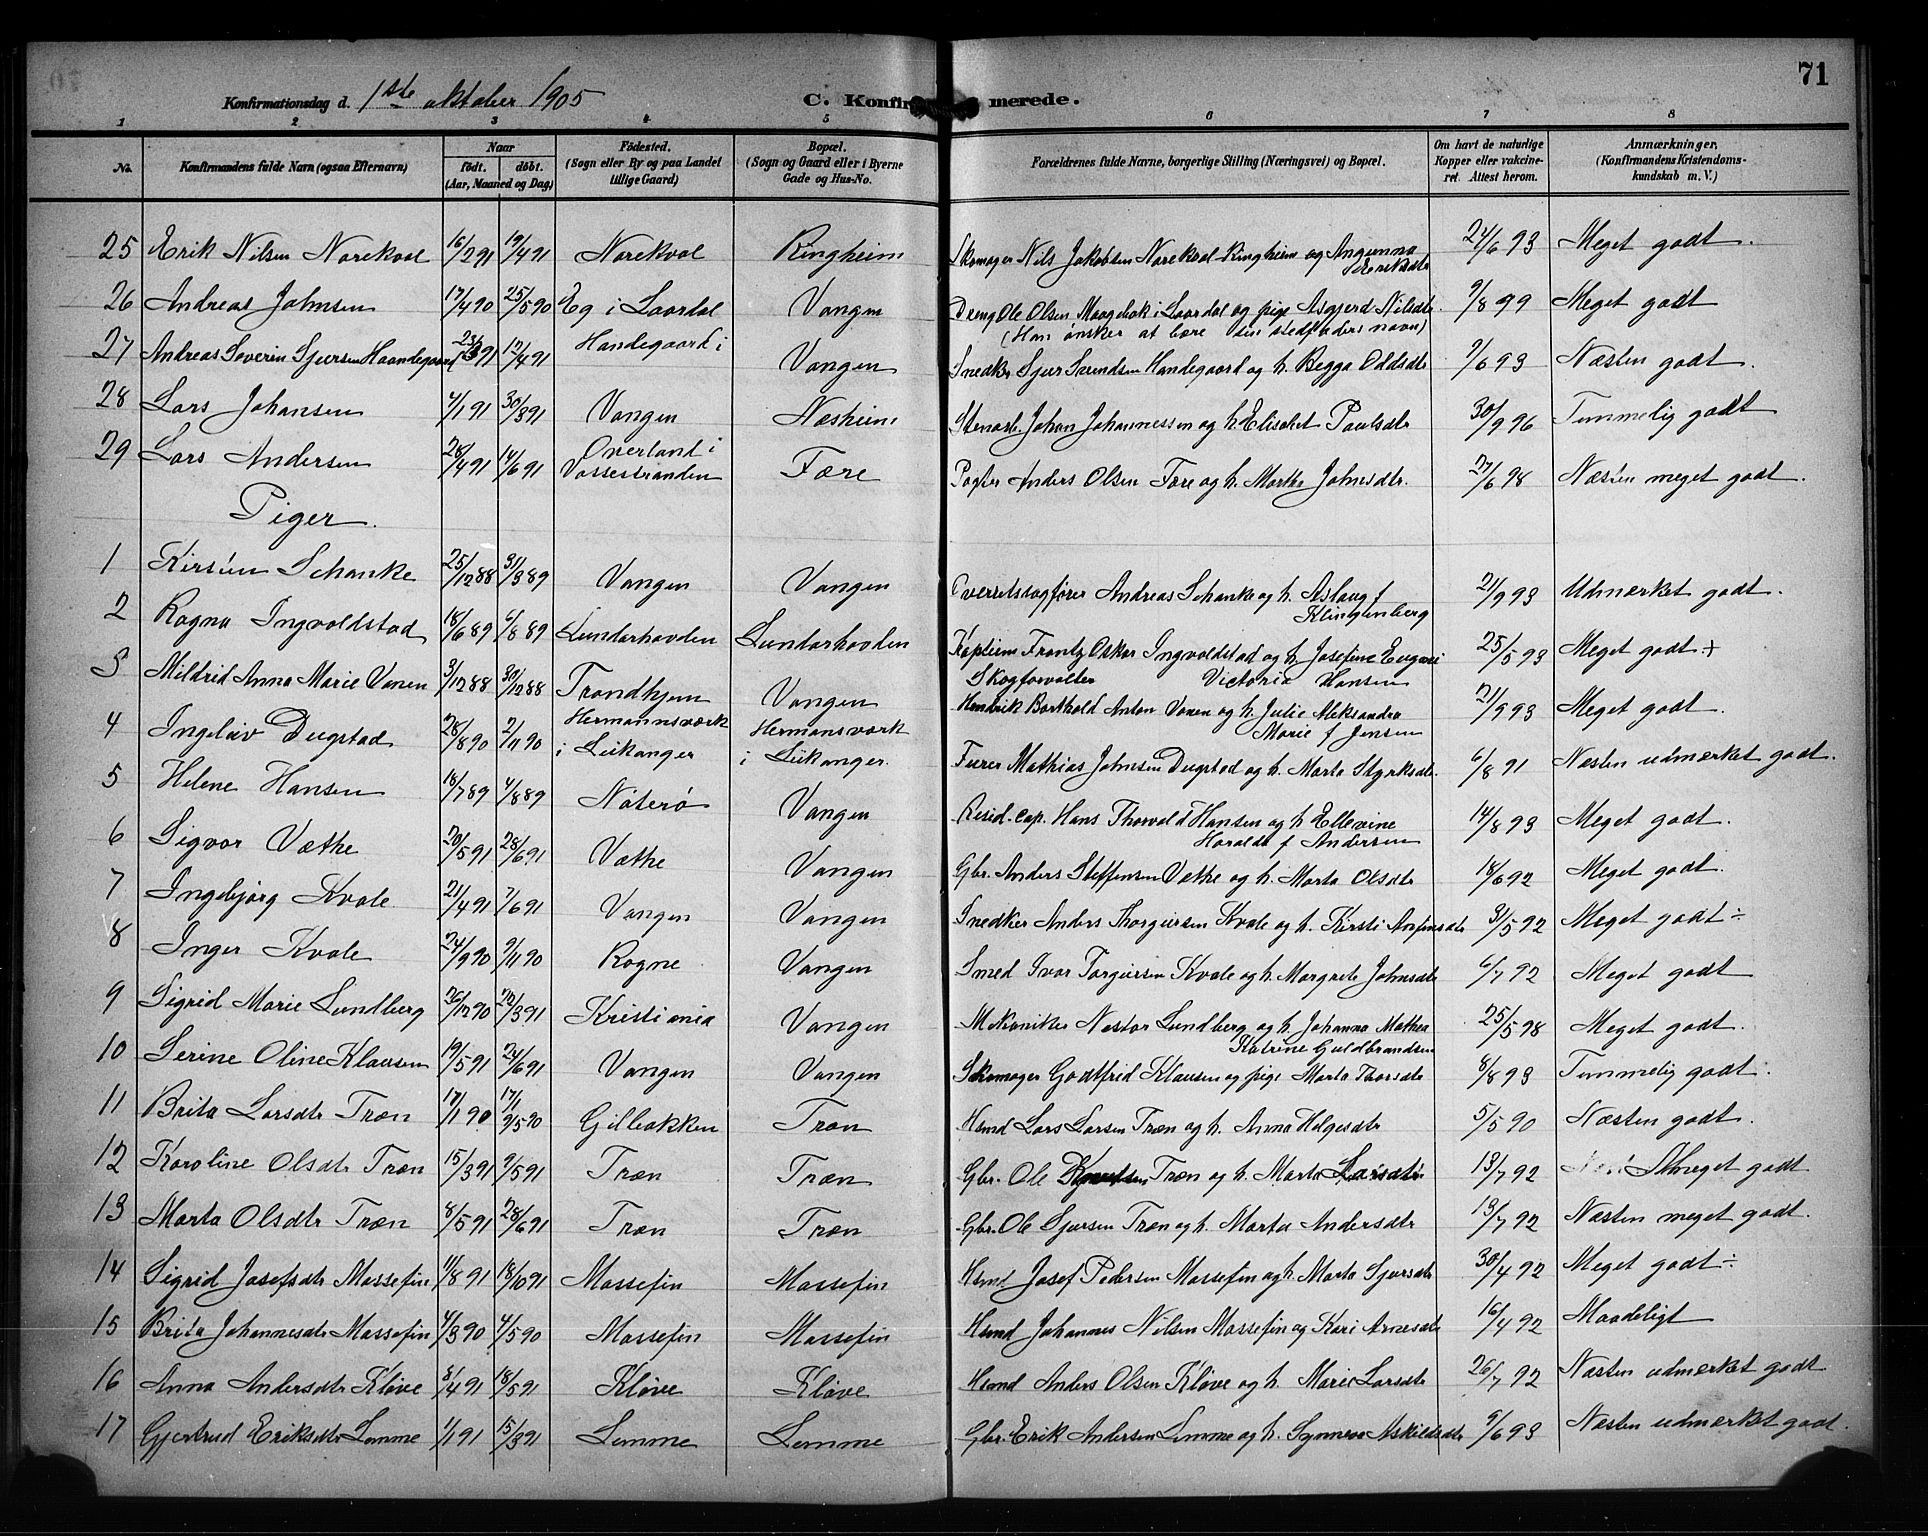 71
Konfirmationsdag d. 1ste oktober 1905
C. Konfirmerede.
1 2 3 4 5 6 7 8
No. Konfirmandens fulde Navn (ogsaa Efternavn) Naar født. døbt. (Aar, Maaned og Dag) Fødested. (Sogn eller By og paa Landet tillige Gaard) Bopæl. (Sogn og Gaard eller i Byerne Gade og Hus-No. Forældrenes fulde Navne, borgerlige Stilling (Næringsvei) og Bopæl. Om havt de naturlige Kopper eller vakcineret. Attest herom. Anmærkninger, (Konfirmandens Kristendomskundskab m. V.)
25 Erik Nilsen Norekval 16/2 91 19/4 91 Norekval Ringheim Skomager Nils Jakobsen Norekval Ringheim og Angunna Eriksdtr 24/6 93 Meget godt.
26 Andreas Johnsen 17/4 90 25/5 90 Eg i Laardal Vangen Dreng Ole Olsen Moogebak i Laardal og pige Asgjerd Nilsdtr. (Han ønsker at bære sin stedfaders navn) 9/8 99 Meget godt
27 Andreas Severin Sjursen Haandegaard 23/3 91 12/4 91 Handegaard i Vangen Snedker Sjur Sarendsen Handegaard og h. Begga Oddsdtr 7/6 93 Næsten godt.
28 Lars Johansen 4/1 91 30/3 91 Vangen Næsheim Stenarb. Johan Johannessen og h. Elisabet Paulsdtr 30/9 96 Temmelig godt
29 Lars Andersen 28/4 91 14/6 91 Overland i Vossestranden Fære Pogter Anders Olsen Fære og h. Martha Johnsdtr. 27/6 98 Næsten meget godt.
Piger.
1 Kirsten Schanke 25/12 88 31/3 89 Vangen Vangen Overretssagfører Andreas Schanke og h. Aslaug f Klingenberg 21/9 93 Udmerket godt.
2 Ragna Ingvoldstad 18/6 89 6/8 89 Lundarhovden Lundarhovden Kaptein Frantz Oskar Ingvoldstad og h. Josefine Eugeni Victoria Hansen 25/5 93 Meget godt +
3 Mildrid Anna Marie Vanen 3/12 88 30/12 88 Trondhjem Vangen Skogforvalter Henrik Barthold Anton Vanen og h. Julie Aleksandra Marie f Jensen 21/9 93 Meget godt.
4 Ingeleiv Dugstad 28/8 90 2/11 90 Hermannsværk i Leikanger Hermansværk i Leikanger. Furer Mathias Johnsen Dugstad og h. Marta Styrksdtr. 6/8 91 Næsten udmerket godt.
5 Helene Hansen 18/7 89 4/8 89 Nøterø Vangen Resid. cap. Hans Thorvald Hansen og h Ellevine Haralda f Andersen 14/8 93 Meget godt.
6 Sigvor Væthe 20/5 91 28/6 91 Væthe Vangen Gbr. Anders Steffensen Væthe og h. Marta Olsdtr 18/6 92 Meget godt.
7 Ingebjørg Kvale 21/4 91 7/6 91 Vangen Vangen Snedker Anders Thorgiersen Kvale og h. Kirsti Anfinsdtr 3/5 92 Meget godt ÷
8 Inger Kvale 24/9 90 9/11 90 Rogne Vangen Smed Ivar Torgiersen Kvale og h. Margrete Johnsdtr 6/7 92 Meget godt
9 Sigrid Marie Lundberg 26/12 90 22/3 91 Kristiania Vangen Mekaniker Nestor Lundberg og h. Johanna Mathea Katrine Guldbrandsen 25/5 98 Meget godt.
10 Serine Oline Klausen 19/5 91 24/6 91 Vangen Vangen Skomager Godtfrid Klausen og pige Marta Thorsdtr 8/8 93 Temmelig godt.
11 Brita Larsdtr Træn 17/1 90 17/1 9/5 90 Gilbakken Træn Hsmd Lars Larsen Træn og h. Anna Helgesdtr 5/5 90 Næsten godt.
12 Karoline Olsdtr Træn 15/3 91 9/5 91 Træn Træn Gbr. Ole Knudsen Træn og h. Marta Larsdtr 13/7 92 Meget godt
13 Marta Olsdtr Træn 8/5 91 28/6 91 Træn Træn Gbr. Ole Sjursen Træn og h. Marta Andersdtr 13/7 92 Næsten meget godt.
14 Sigrid Josefsdtr Massefin 11/8 91 18/10 91 Massefin Massefin Hsmd Josef Pedersen Massefin og h. Marta Sjursdtr 30/4 92 Meget godt ÷
15 Brita Johannesdtr Massefin 4/3 90 4/5 90 Massefin Massefin Hsmd Johannes Nilsen Massefin og Kari Arnesdtr 16/4 92 Maadeligt
16 Anna Andersdtr Kløve 3/4 91 18/5 91 Kløve Kløve Hsmd Anders Olsen Kløve og h. Marie Larsdtr 26/7 92 Næsten udmerket godt
17 Gjertrud Eriksdtr Lemme 1/1 91 15/3 91 Lemme Lemme Gbr. Erik Andersen Lemme og h. Synneva Askildsdtr 9/6 93 Næsten udmerket godt.